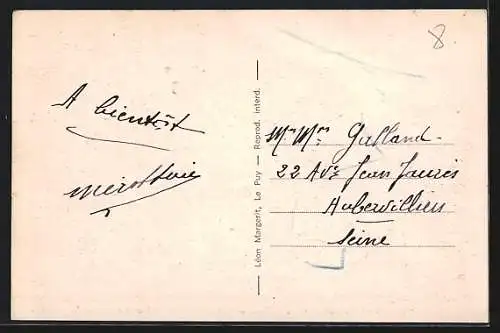 A bientôt
8
Léon Margerit, Le Puy — Reprod. interd.
Mr Mme Galland
22 Ave Jean Jaurès
Aubervilliers
Seine